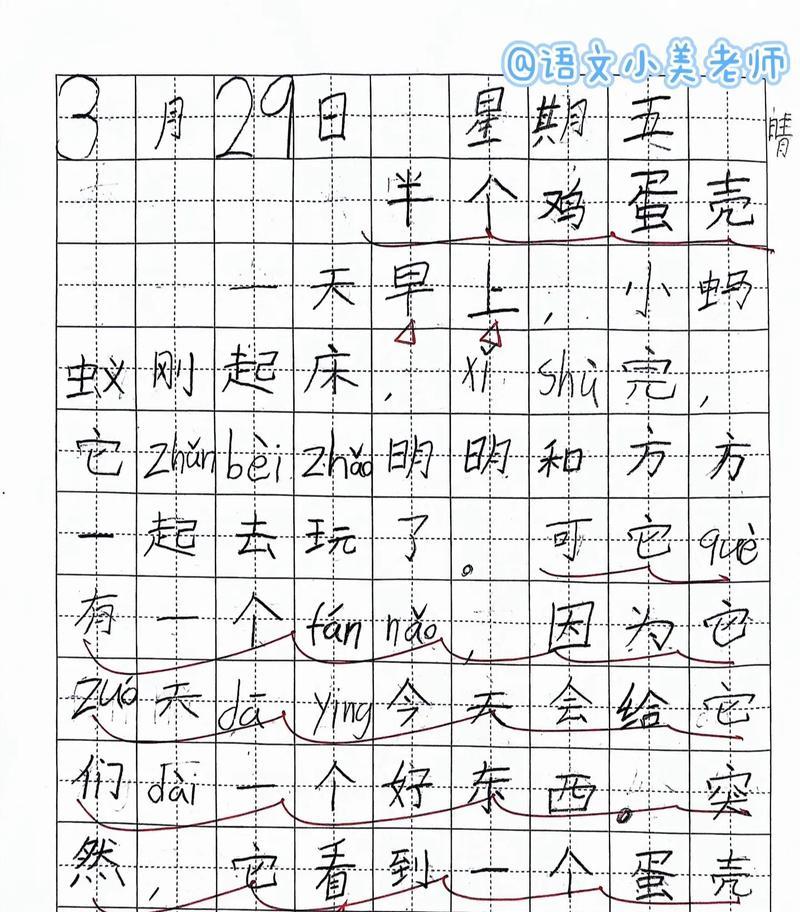 @语文小美老师
3月29日 星期五 晴
半个鸡蛋壳
一天早上，小蚂
蚁刚起床，xǐ shù完，
它zhǔn bèi zhǎo明明和方方
一起去玩了。可它què
有一个fán nǎo，因为它
zuó天dā ying今天会给它
们dài一个好东西。突
然，它看到一个蛋壳